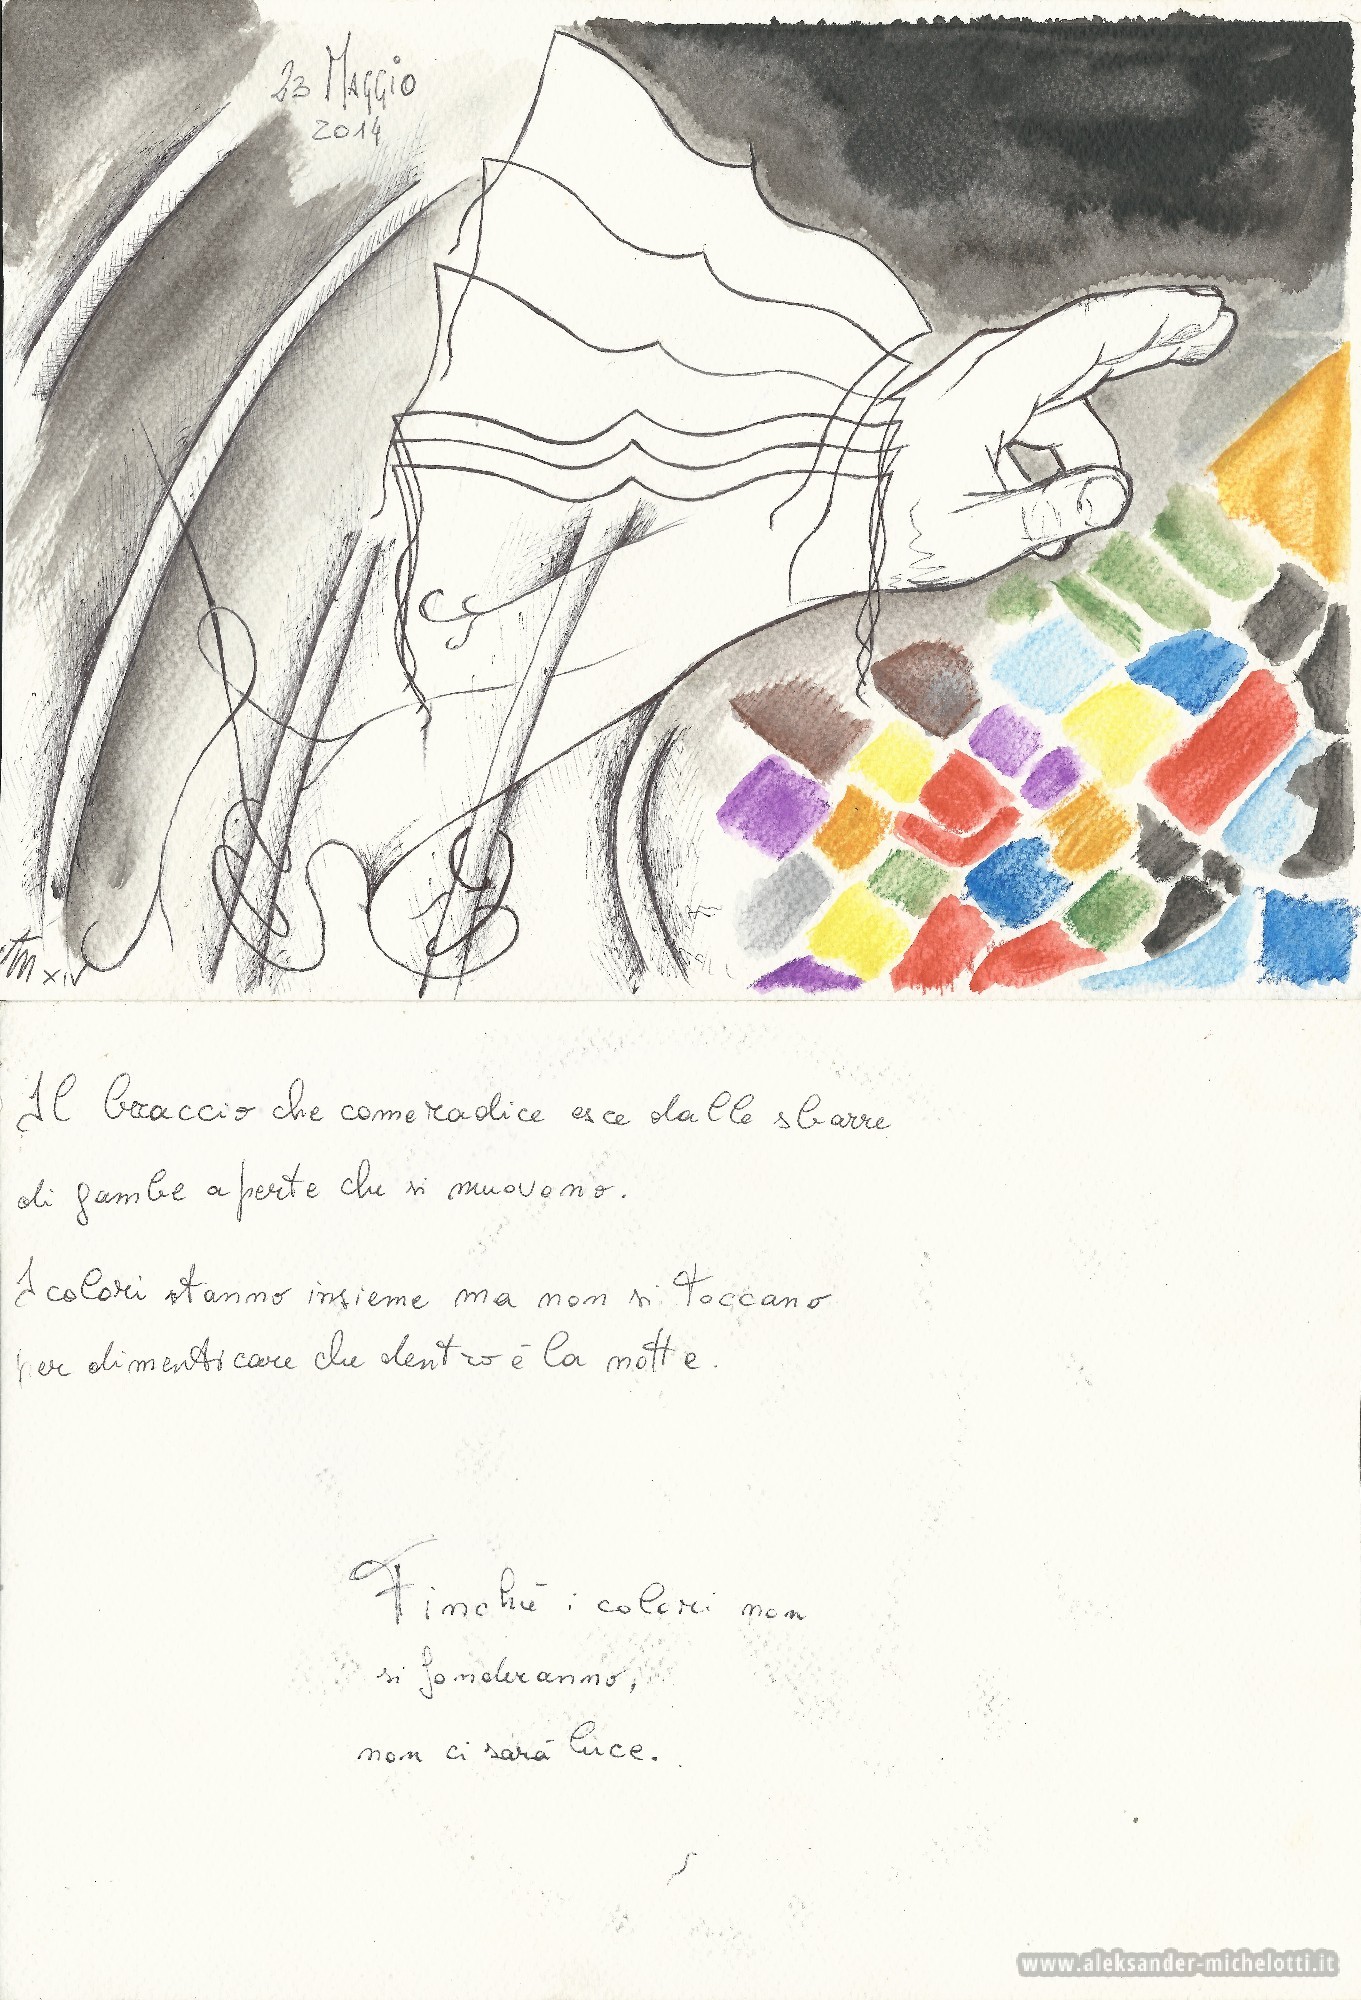 23 Maggio
2014
Am XIV
Il braccio che come radice esce dalle sbarre
di gambe aperte che si muovono.
I colori stanno insieme ma non si toccano
per dimenticare che dentro è la notte.
Finché i colori non
si fonderanno,
non ci sarà luce.
www.aleksander-michelotti.it